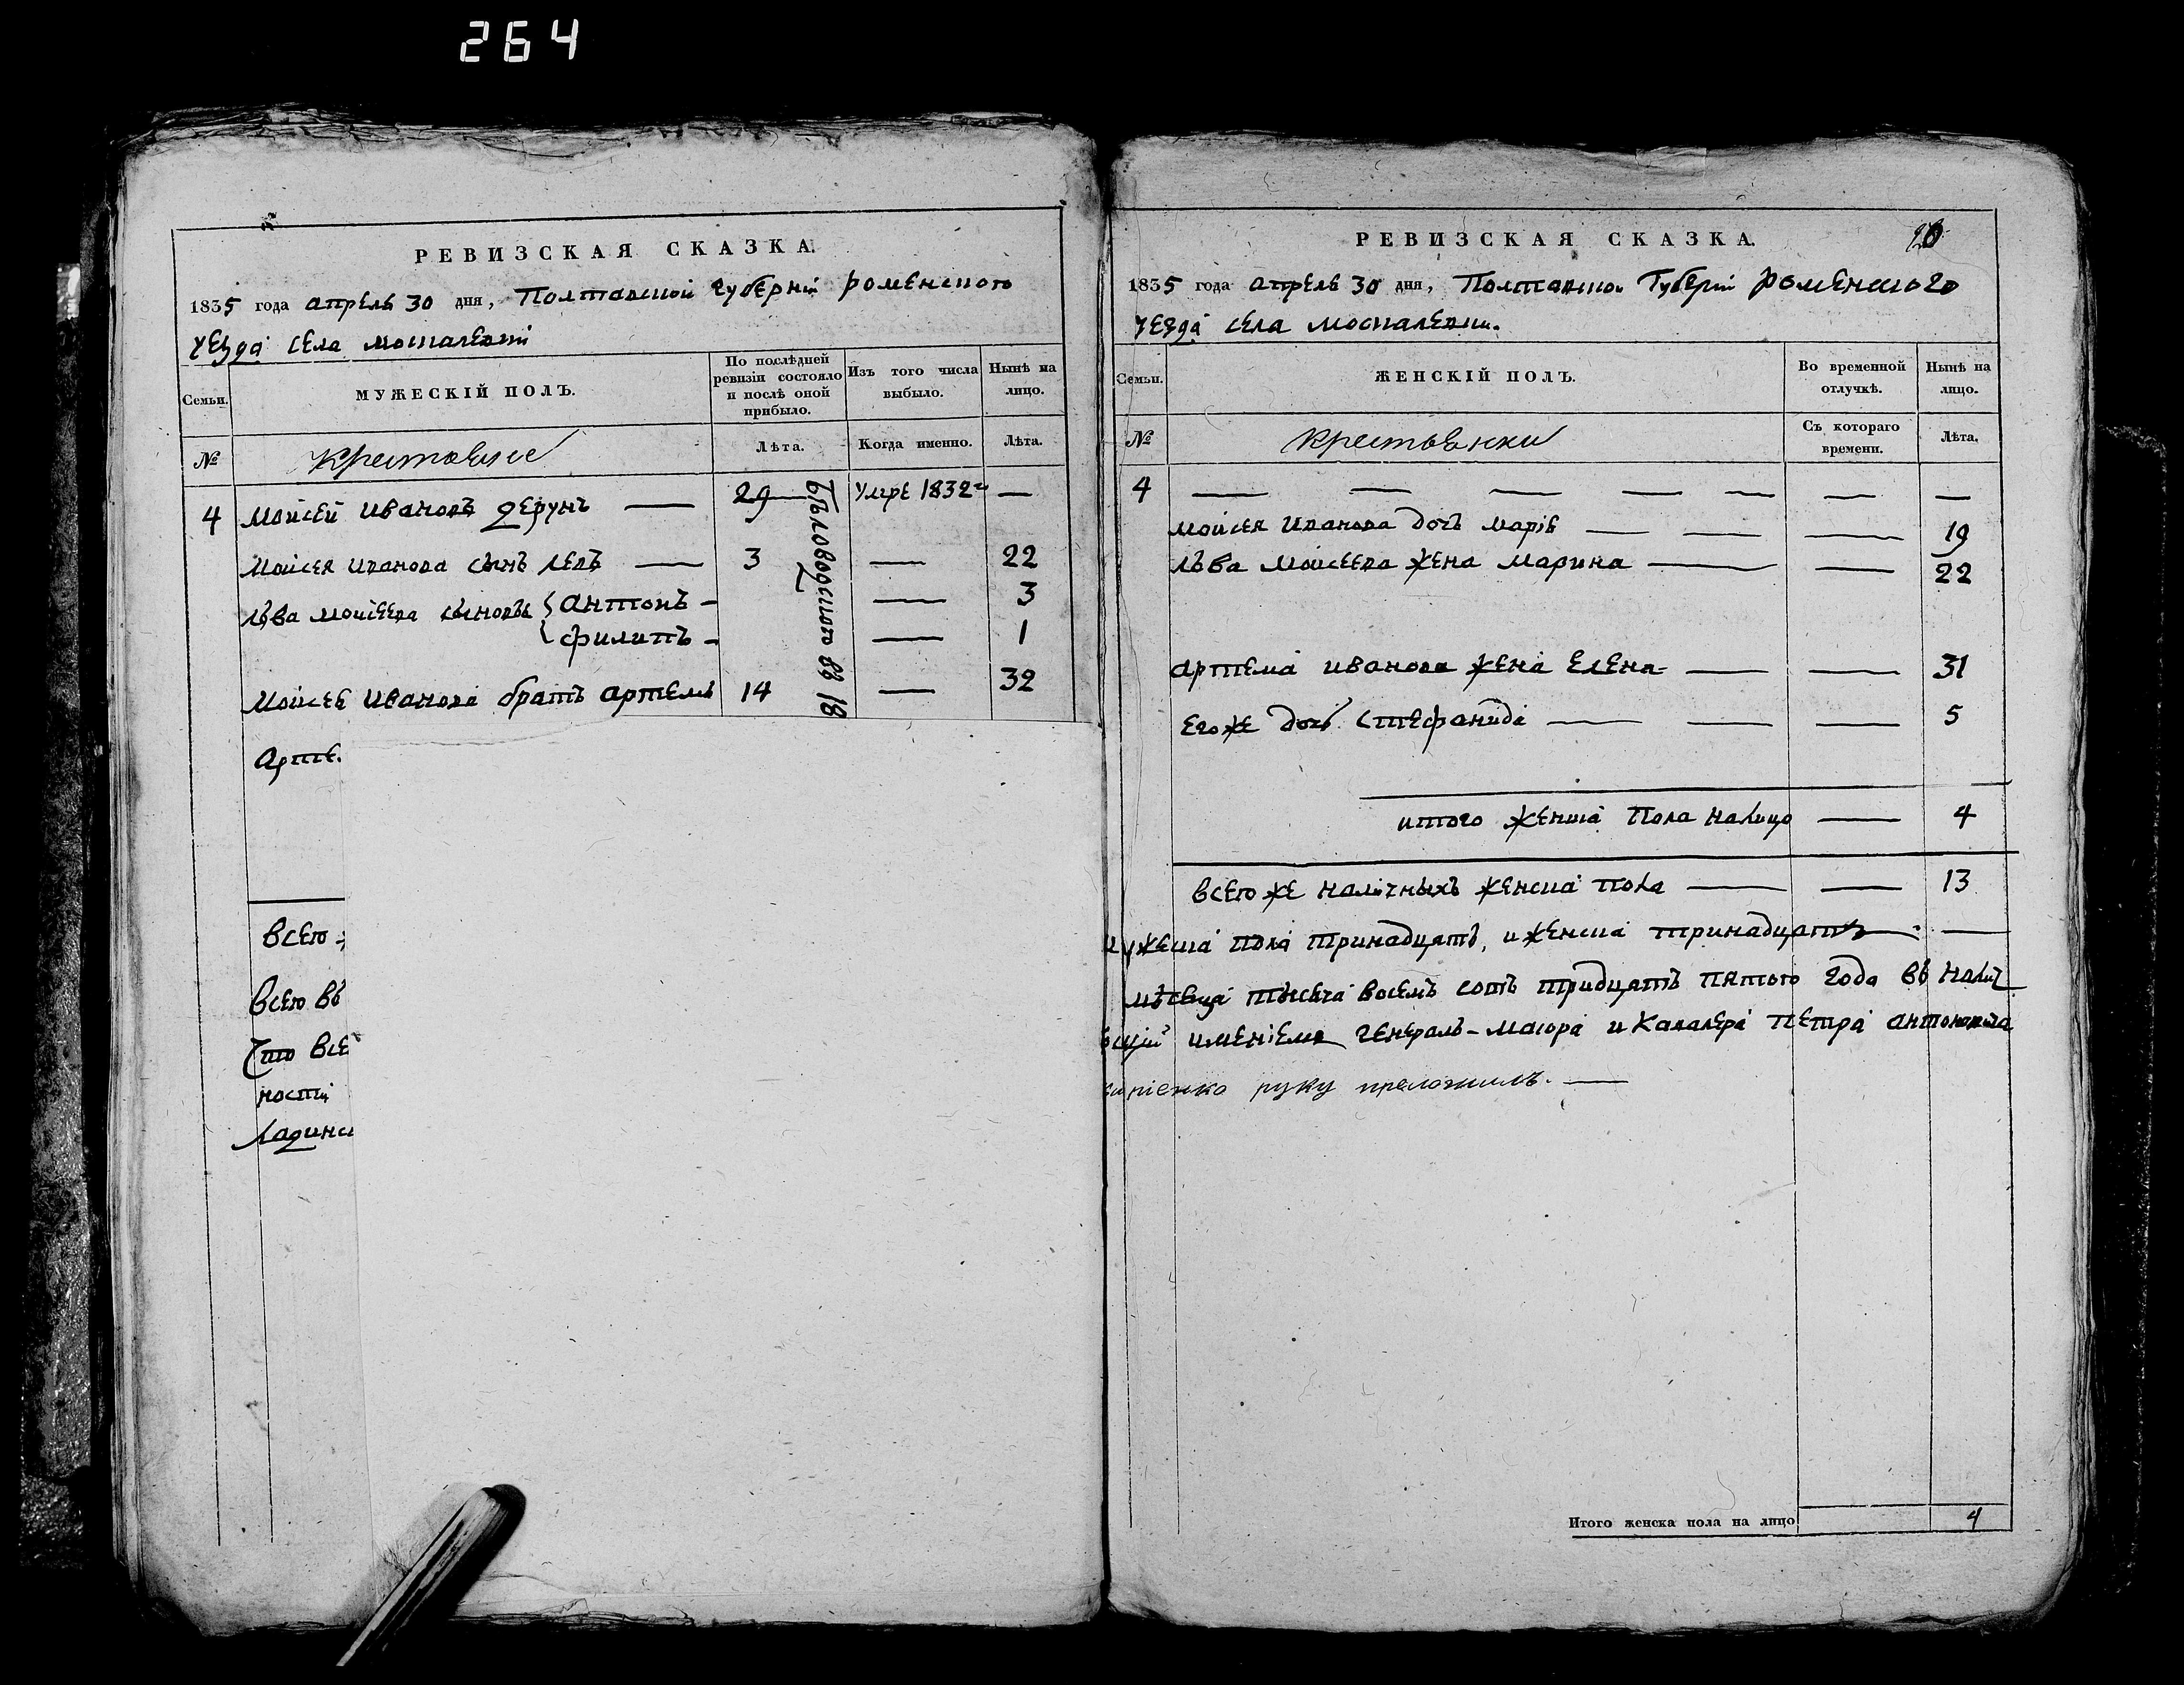 264
РЕВИЗСКАЯ СКАЗКА.
1835 года апреля 30 дня, Полтавской губерніи роменского
уезда села москалевки
Семьи.
МУЖЕСКІЙ ПОЛЪ.
По послѣдней ревизіи состояло и послѣ оной прибыло.
Изъ того числа выбыло.
Нынѣ на лицо.
№
Крестьяне
Лѣта.
Когда именно.
Лѣта.
4 Мойсей Ивановъ Дерунъ — 29 Умре 1832го —
Мойсея Иванова сынъ левъ — 3 — 22
Льва Мойсеева сыновья { антонъ — — 3
{ филипъ — — 1
Мойсея Иванова братъ артемъ 14 — 32
Бѣловодского въ 18
Арте.
всего
Всего въ
Что все
ности
Ладинс
РЕВИЗСКАЯ СКАЗКА.
1835 года апреля 30 дня, Полтавской Губерніи роменского
уезда села москалевки.
Семьи.
ЖЕНСКІЙ ПОЛЪ.
Во временной отлучкѣ.
Нынѣ на лицо.
№
Крестьянки
Съ котораго времени.
Лѣта.
4 — — — — — — —
мойсея Иванова дочь марія — — — 19
льва Мойсеева жена марина — — 22
артема иванова жена Елена — — 31
Егоже дочь Стефанида — — — 5
итого женска Пола налицо — 4
всего же наличныхъ женска пола — — 13
мужеска пола тринадцать, и женска тринадцать — . —
мѣсяца тысяча восемъ сотъ тридцать пятого года въ налич
ющій имѣніемъ генералъ-маіора и Кавалера Петра антоновича
руку преложилъ. —
Итого женска пола на лицо 4